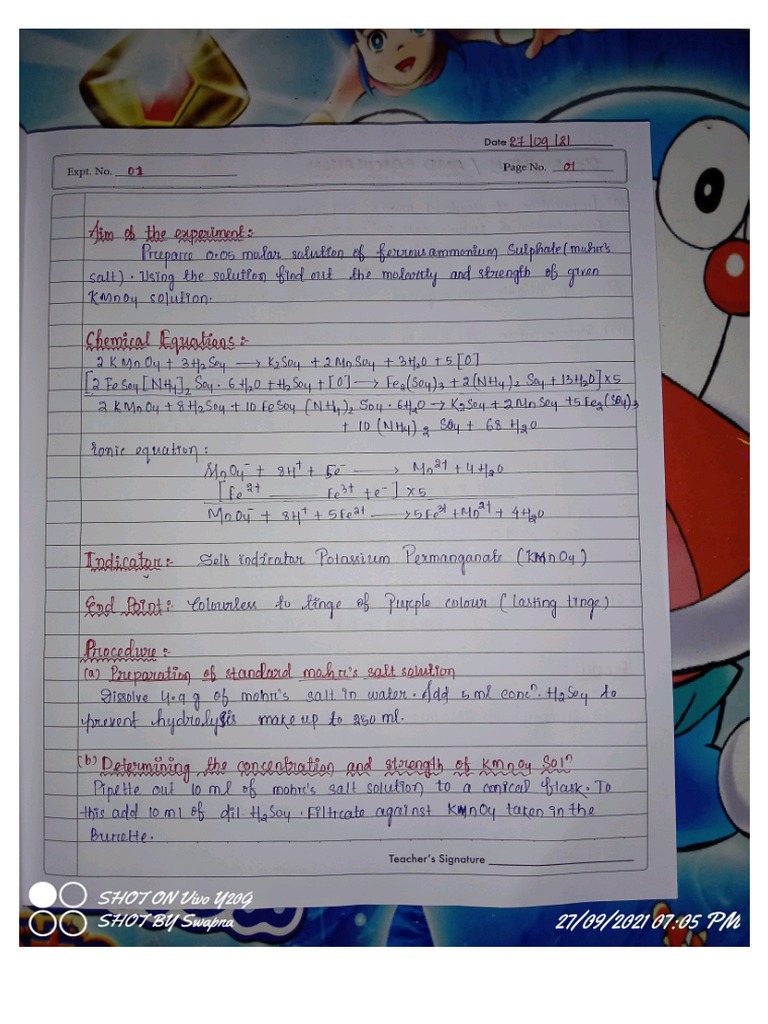 Date 27/09/21
Expt. No. 01
Page No. 01
Aim of the experiment:-
Prepare 0.05 molar solution of ferrous ammonium Sulphate (mohr's
salt). Using the solution find out the molarity and strength of given
KMnO4 solution.
Chemical Equations:-
2 KMnO4 + 3H2SO4 → K2SO4 + 2MnSO4 + 3H2O + 5[O]
[2 FeSO4 [NH4]2 SO4 · 6H2O + H2SO4 + [O] → Fe2(SO4)3 + 2(NH4)2 SO4 + 13H2O] x5
2 KMnO4 + 8H2SO4 + 10 FeSO4 (NH4)2 SO4 · 6H2O → K2SO4 + 2MnSO4 + 5Fe2(SO4)3
+ 10 (NH4)2 SO4 + 68 H2O
Ionic equation:
MnO4⁻ + 8H⁺ + 5e⁻ → Mn²⁺ + 4H2O
[Fe²⁺ — Fe³⁺ + e⁻] x5
MnO4⁻ + 8H⁺ + 5Fe²⁺ → 5Fe³⁺ + Mn²⁺ + 4H2O
Indicator:- Self indicator Potassium Permanganate (KMnO4)
End Point:- Colourless to tinge of Purple colour (lasting tinge)
Procedure:-
(a) Preparation of standard mohr's salt solution
Dissolve 4.9 g of mohr's salt in water. Add 5 ml concⁿ. H2SO4 to
prevent hydrolysis make up to 250 ml.
(b) Determining the concentration and strength of KMnO4 Solⁿ
Pipette out 10 ml of mohr's salt solution to a conical flask. To
this add 10 ml of dil H2SO4. Filtrate against KMnO4 taken in the
Burette.
Teacher's Signature
SHOT ON Vivo Y20G
SHOT BY Swapna
27/09/2021 07:05 PM